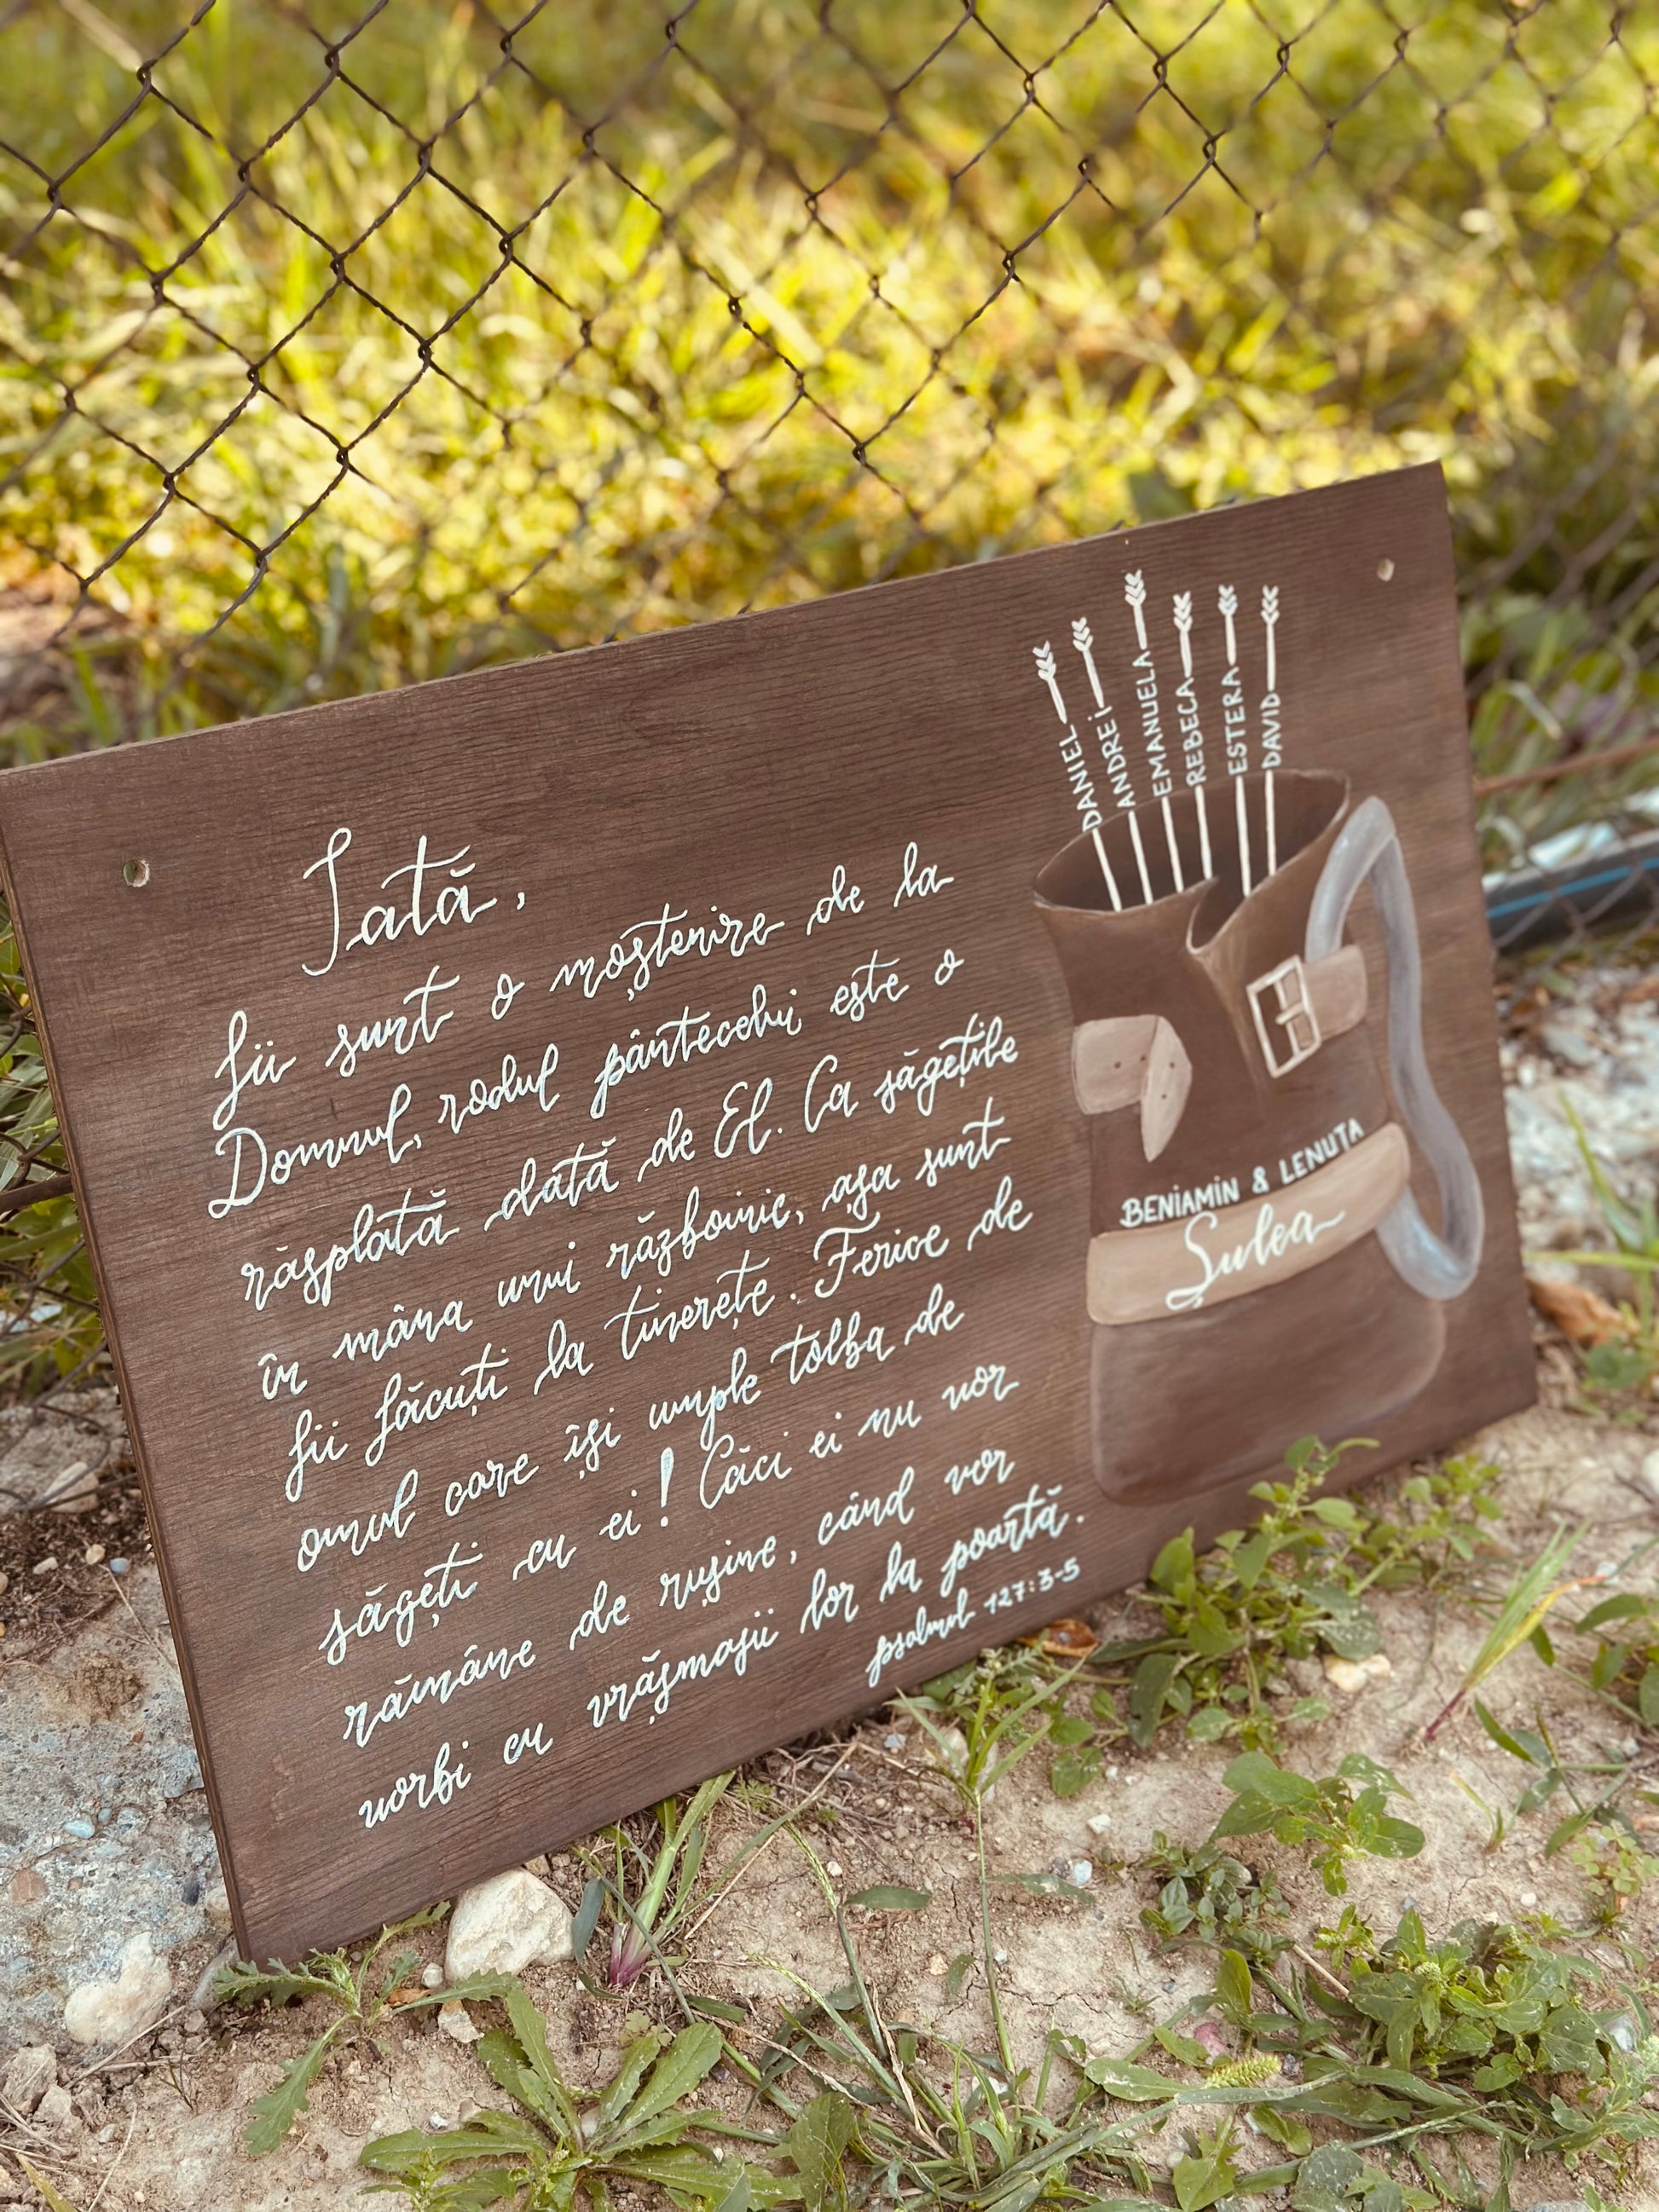 Iată,
fii sunt o moștenire de la
Domnul, rodul pântecelui este o
răsplată dată de El. Ca săgețile
în mâna unui războinic, așa sunt
fii făcuți la tinerețe. Ferice de
omul care își umple tolba de
săgeți cu ei! Căci ei nu vor
rămâne de rușine, când vor
vorbi cu vrășmașii lor la poartă.
psalmul 127:3-5
DANIEL
ANDREi
EMANUELA
REBECA
ESTERA
DAVID
BENiAMiN & LENUTA
Șulea